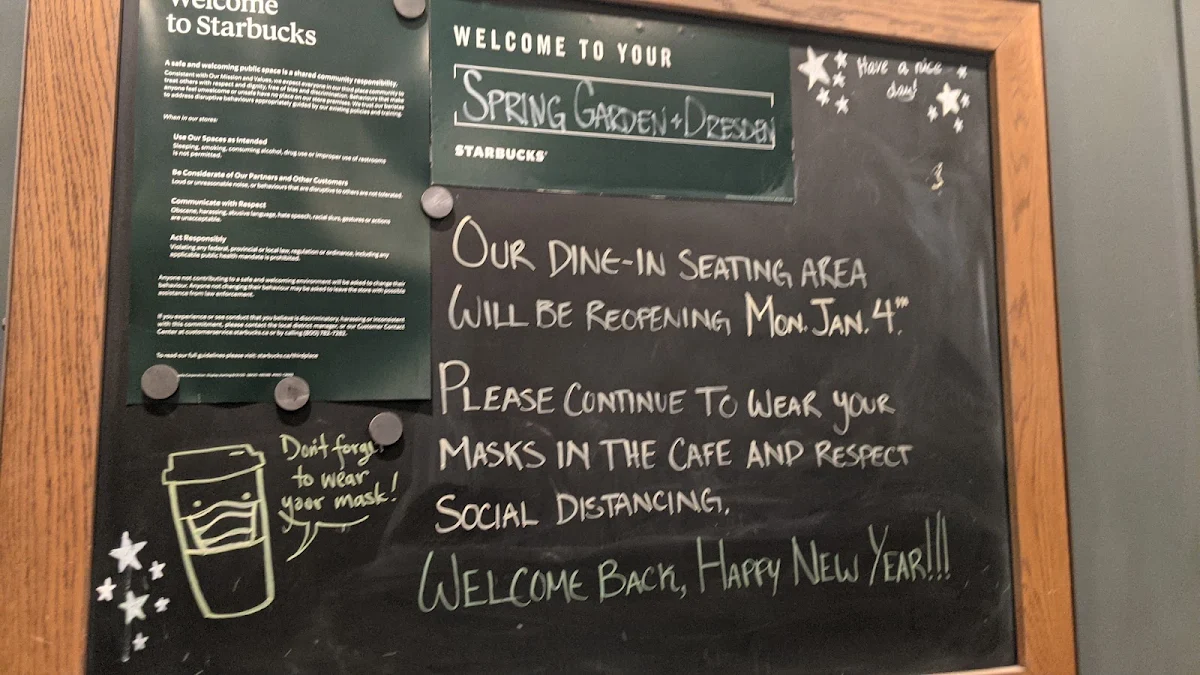 Welcome
to Starbucks
A safe and welcoming public space is a shared community responsibility.
Consistent with Our Mission and Values, we expect everyone in our third place community to
treat others with respect and dignity, free of bias and discrimination. Behaviours that make
anyone feel unwelcome or unsafe have no place on our store premises. We trust our baristas
to address disruptive behaviours appropriately guided by our existing policies and training.
When in our stores:
Use Our Spaces as Intended
Sleeping, smoking, consuming alcohol, drug use or improper use of restrooms
is not permitted.
Be Considerate of Our Partners and Other Customers
Loud or unreasonable noise, or behaviours that are disruptive to others are not tolerated.
Communicate with Respect
Obscene, harassing, abusive language, hate speech, racial slurs, gestures or actions
are unacceptable.
Act Responsibly
Violating any federal, provincial or local law, regulation or ordinance, including any
applicable public health mandate is prohibited.
Anyone not contributing to a safe and welcoming environment will be asked to change their
behaviour. Anyone not changing their behaviour may be asked to leave the store with possible
assistance from law enforcement.
If you experience or see conduct that you believe is discriminatory, harassing or inconsistent
with this commitment, please contact the local district manager, or our Customer Contact
Center at customerservice.starbucks.ca or by calling (800) 782-7282.
To read our full guidelines please visit: starbucks.ca/thirdplace
WELCOME TO YOUR
SPRING GARDEN + DRESDEN
STARBUCKS
Have a nice
day!
OUR DINE-IN SEATING AREA
WILL BE REOPENING MON. JAN. 4TH.
PLEASE CONTINUE TO WEAR YOUR
MASKS IN THE CAFE AND RESPECT
SOCIAL DISTANCING.
WELCOME BACK, HAPPY NEW YEAR!!!
Don't forget
to wear
your mask!